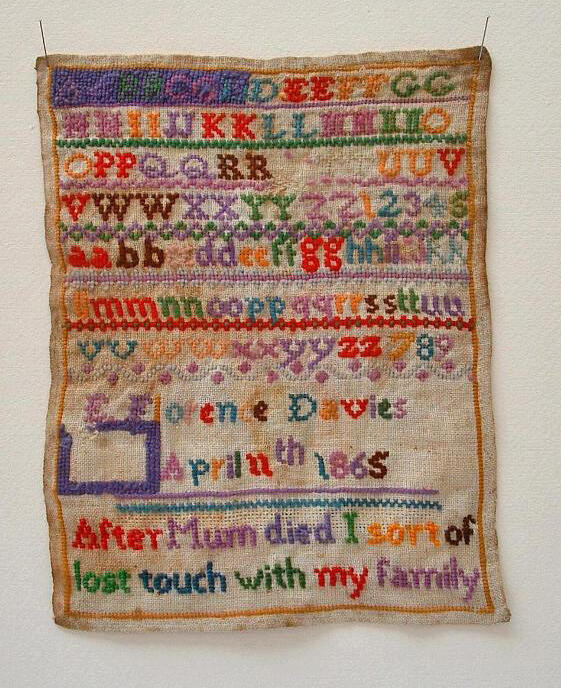 DEEFFGG
HHIIJJKKLLMMNNO
OPPQQRR UUV
VWWXXYYZZ12345
aabbccddeeffgghhiikk
mmnnooppqqrrssttuu
vvwwxxyyzz789
Florence Davies
April 11th 1865
After Mum died I sort of
lost touch with my family